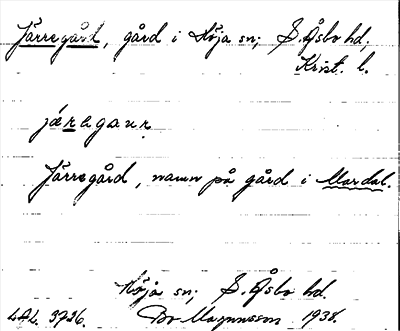 Järregård, gård i Höja sn; S. Åsbo hd;
Krist. l.
järagaur.
Järregård, namn på gård i Mardal.
Höja sn; S. Åsbo hd.
LAL. 3726. Bo Magnusson 1938.